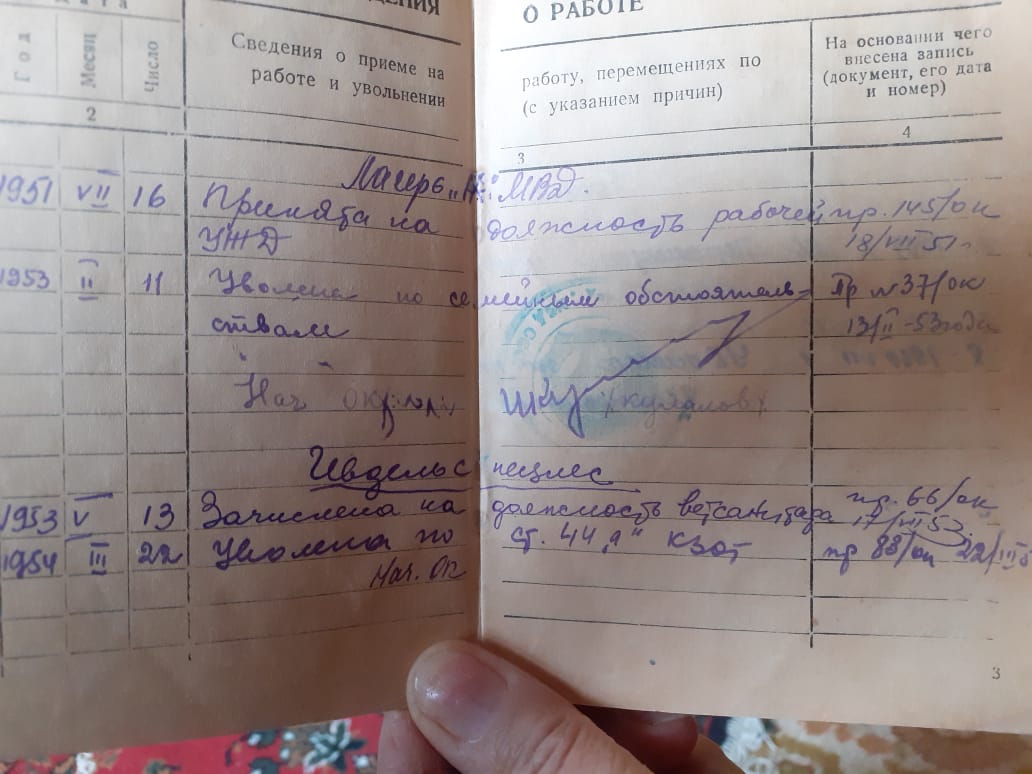 О РАБОТЕ
Год
Месяц
Число
Сведения о приеме на
работе и увольнении
работу, перемещениях по
(с указанием причин)
На основании чего
внесена запись
(документ, его дата
и номер)
2
3
4
Лагерь МВД.
1951 VII 16 Принята на должность рабочей пр. 145/ок
УЖД 18/VII 51г
1953 II 11 Уволена по семейным обстоятель- Пр № 37/ок
ствам 13/II-53 года
Нач
Ивдельспецлес
1953 V 13 Зачислена на должность ветсанитара пр. 66/ок
17/VII 53
1954 III 22 Уволена по ст. 44 "а" КЗОТ пр 88/ок 22/III
Нач. ОК
3